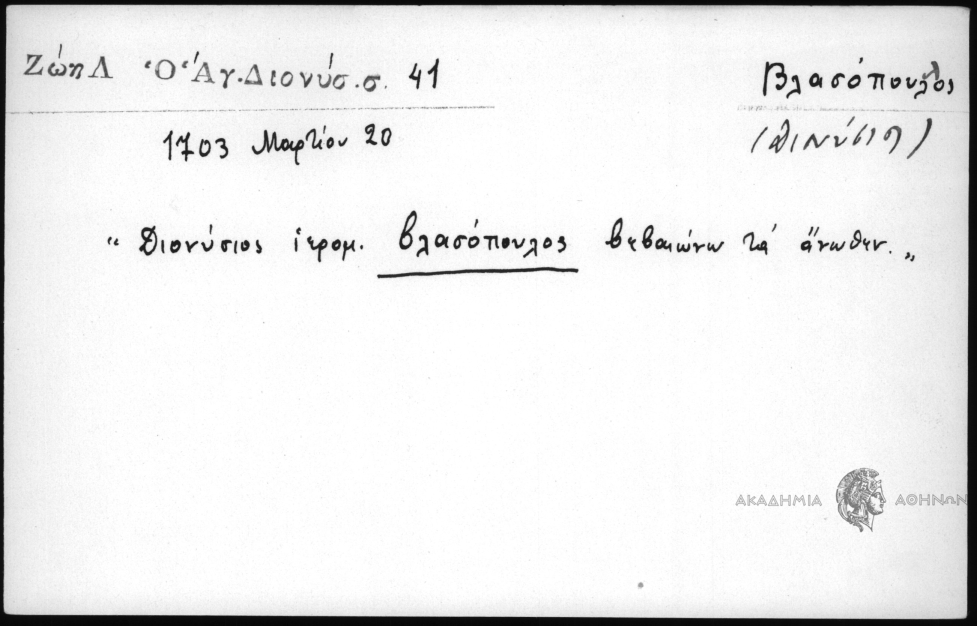 Ζώη Λ Ὁ Ἅγ. Διονύσ. σ. 41 Βλασόπουλος
1703 Μαρτίου 20
"Διονύσιος ἱερομ. Βλασόπουλος βεβαιώνω τά ἄνωθεν."
ΑΚΑΔΗΜΙΑ ΑΘΗΝΩΝ